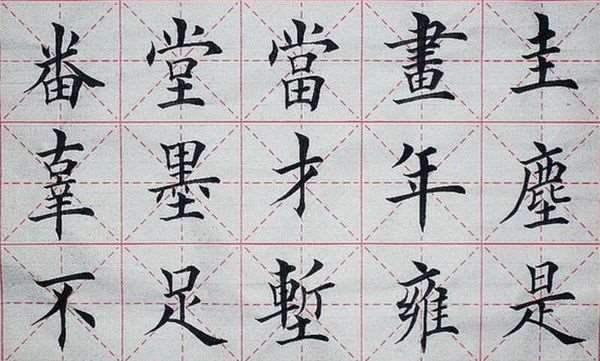 番堂當畫圭
辜墨才年塵
不足塹雍是